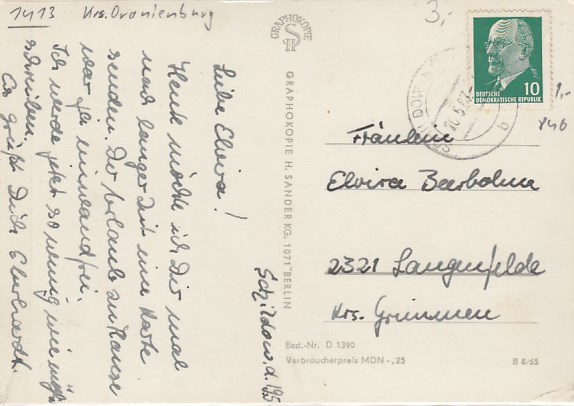 1413 Krs. Oranienburg
Schildow, d. 19.5
Liebe Elvira!
Heute möchte ich Dir mal
nach langer Zeit eine Karte
senden. Der Urlaub zu Hause
war ja einwandfrei.
Ich werde jetzt so wenig wie mögl.
schreiben.
Es grüßt Dich Eberhardt.
GRAPHOKOPIE
GRAPHOKOPIE H. SANDER KG, 1071 BERLIN
3,-
10
DEUTSCHE
DEMOKRATISCHE REPUBLIK
SCHILDOW
b
1,-
Fräulein
Elvira
2321 Langenfelde
Krs. Grimmen
Best.-Nr. D 1390
Verbraucherpreis MDN -,25
B 8/65